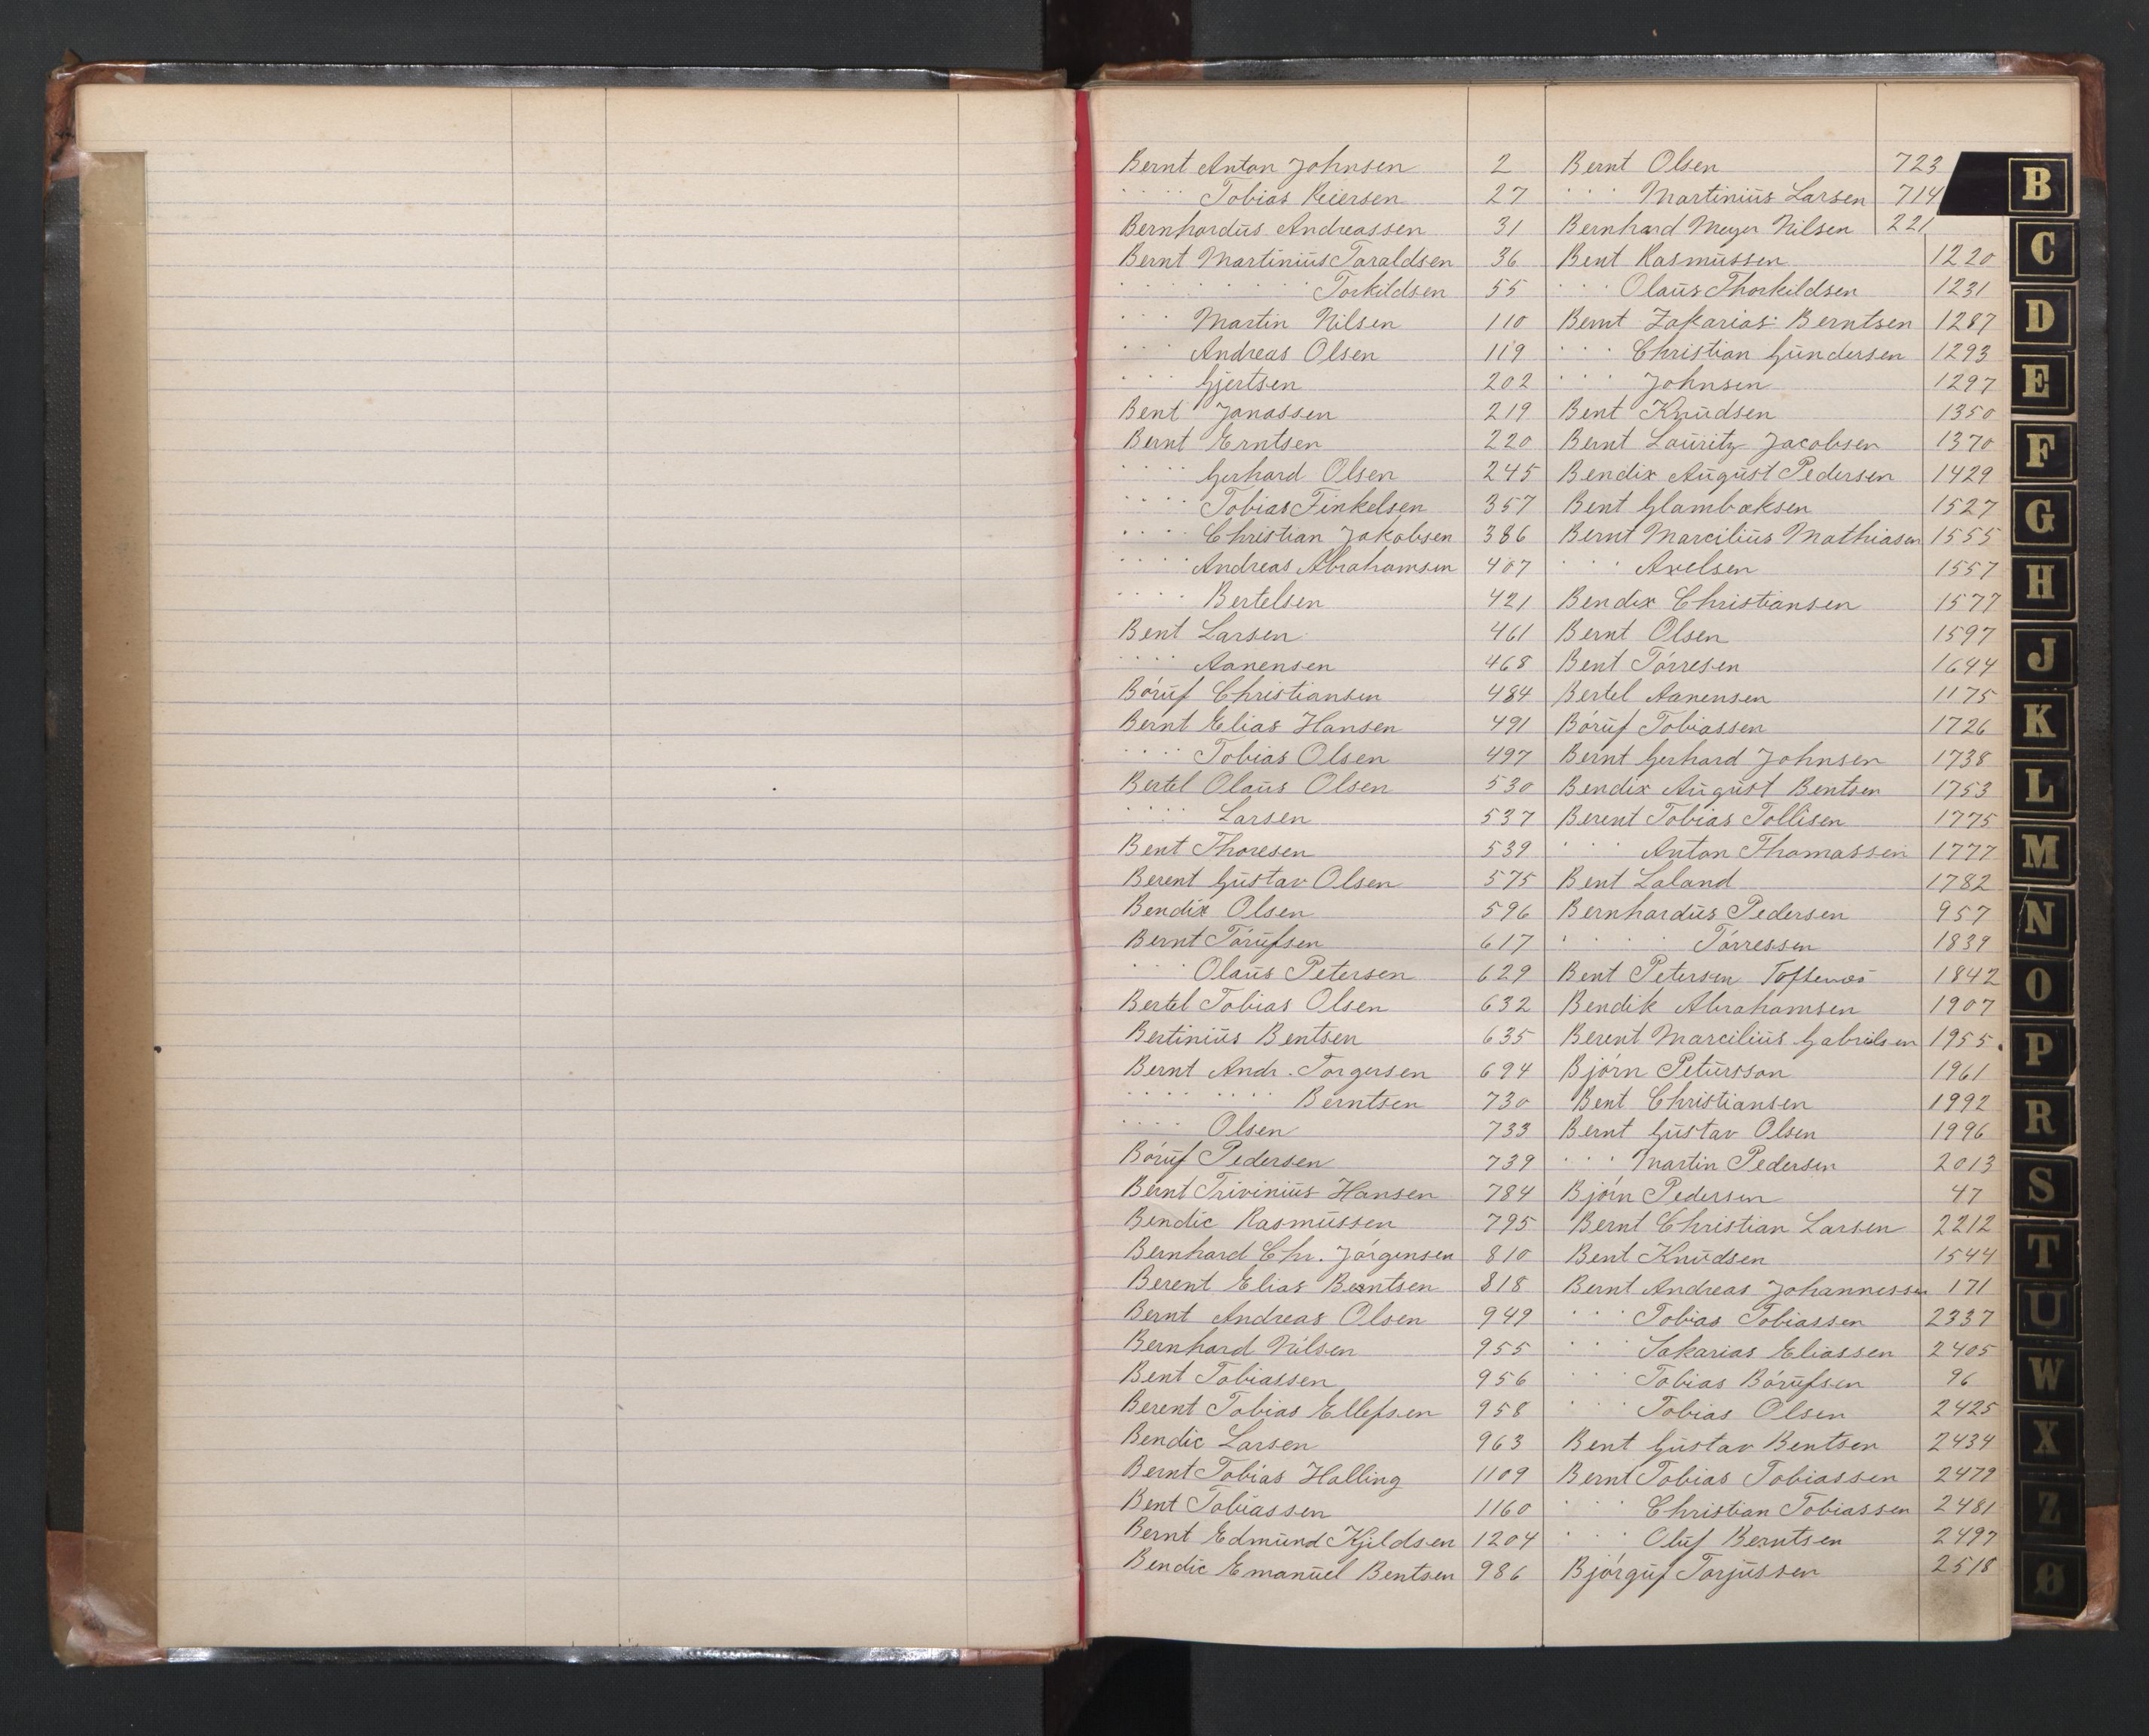 Bernt Anton Johnsen 2
" " Tobias Reiersen 27
Bernhardus Andreassen 31
Bernt Martinius Taraldsen 36
" " " " Torkildsen 55
" " Martin Nilsen 110
" " Andreas Olsen 119
" " Gjertsen 202
Bent Janassen 219
Bernt Erntsen 220
" " Gerhard Olsen 245
" " Tobias Finkelsen 357
" " Christian Jakobsen 386
" " Andreas Abrahamsen 407
" " Bertelsen 421
Bent Larsen 461
" " Aanensen 468
Böruf Christiansen 484
Bernt Elias Hansen 491
" " Tobias Olsen 497
Bertel Olaus Olsen 530
" " Larsen 537
Bent Thoresen 539
Berent Gustav Olsen 575
Bendix Olsen 596
Bernt Törufsen 617
" " Olaus Petersen 629
Bertel Tobias Olsen 632
Bertinius Bentsen 635
Bernt Andr. Torgersen 694
" " " " Berntsen 730
" " Olsen 733
Böruf Pedersen 739
Bernt Trivinius Hansen 784
Bendic Rasmussen 795
Bernhard Chr. Jörgensen 810
Berent Elias Berntsen 818
Bernt Andreas Olsen 949
Bernhard Nilsen 955
Bent Tobiassen 956
Berent Tobias Ellefsen 958
Bendic Larsen 963
Bernt Tobias Halling 1109
Bent Tobiassen 1160
Bernt Edmund Kjeldsen 1204
Bendic Emanuel Bentsen 986
Bernt Olsen 723
" " Martinius Larsen 714
Bernhard Meyer Nilsen 221
Bent Rasmussen 1220
" " Olaus Thorkildsen 1231
Bernt Zakarias Berntsen 1287
" " Christian Gundersen 1293
" " Johnsen 1297
Bent Knudsen 1350
Bernt Lauritz Jacobsen 1370
Bendix August Pedersen 1429
Bent Glambæksen 1527
Bernt Marcilius Mathiasen 1555
" " Axelsen 1557
Bendix Christiansen 1577
Bernt Olsen 1597
Bent Törresen 1644
Bertel Aanensen 1175
Böruf Tobiassen 1726
Bernt Gerhard Johnsen 1738
Bendix August Bentsen 1753
Berent Tobias Tollisen 1775
" " Anton Thomassen 1777
Bent Laland 1782
Bernhardus Pedersen 957
" " Törressen 1839
Bent Petersen 1842
Bendik Abrahamsen 1907
Berent Marcilius Gabrielsen 1955
Björn Petursson 1961
Bent Christiansen 1992
Bernt Gustav Olsen 1996
" " Martin Pedersen 2013
Björn Pedersen 47
Bernt Christian Larsen 2212
Bent Knudsen 1544
Bernt Andreas Johannessen 171
" " Tobias Tobiassen 2337
" " Sakarias Eliassen 2405
" " Tobias Börufsen 96
" " Tobias Olsen 2425
Bent Gustav Bentsen 2434
Bernt Tobias Tobiassen 2479
" " Christian Tobiassen 2481
" " Oluf Berntsen 2497
Björguf Torjussen 2518
B
C
D
E
F
G
H
J
K
L
M
N
O
P
R
S
T
U
W
X
Z
Ø